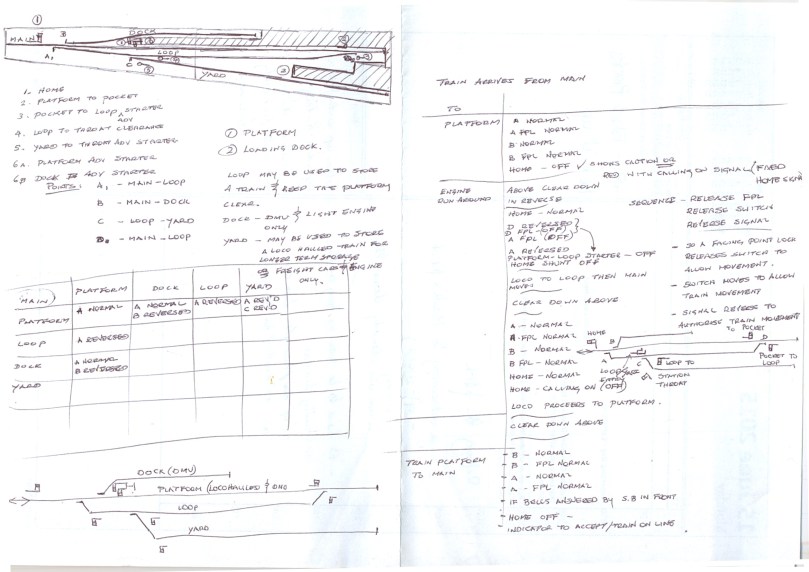 ①
MAIN
B
DOCK
A
LOOP
C
YARD
②
1. HOME
2. PLATFORM TO POCKET
3. POCKET TO LOOP ADV STARTER
4. LOOP TO THROAT CLEARANCE
5. YARD TO THROAT ADV STARTER
6A. PLATFORM ADV STARTER
6B DOCK ADV STARTER
POINTS:
A, - MAIN-LOOP
B - MAIN-DOCK
C - LOOP-YARD
D. - MAIN-LOOP
① PLATFORM
② LOADING DOCK.
LOOP MAY BE USED TO STORE
A TRAIN & KEEP THE PLATFORM
CLEAR.
DOCK - DMU & LIGHT ENGINE
ONLY
YARD - MAY BE USED TO STORE
A LOCO HAULED TRAIN FOR
LONGER TERM STORAGE
OR FREIGHT CARS & ENGINE
ONLY.
MAIN
PLATFORM
DOCK
LOOP
YARD
PLATFORM
A NORMAL
A NORMAL
B REVERSED
A REVERSED
A REV'D
C REV'D
LOOP
A REVERSED
DOCK
A NORMAL
B REVERSED
YARD
DOCK (DMU)
PLATFORM (LOCOHAULED & DMU
LOOP
YARD
TRAIN ARRIVES FROM MAIN
TO
PLATFORM
A NORMAL
A FPL NORMAL
B NORMAL
B FPL NORMAL
HOME - OFF ✓ SHOWS CAUTION OR
RED WITH CALLING ON SIGNAL (FIXED
HOME SIGN)
ENGINE
RUN AROUND
ABOVE CLEAR DOWN
IN REVERSE
HOME - NORMAL
D REVERSED
D FPL (OFF)
A FPL (OFF)
A REVERSED
PLATFORM-LOOP STARTER - OFF
HOME SHUNT OFF
LOCO TO LOOP THEN MAIN
MOVES
CLEAR DOWN ABOVE
SEQUENCE - RELEASE FPL
RELEASE SWITCH
REVERSE SIGNAL
- SO A FACING POINT LOCK
RELEASES SWITCH TO
ALLOW MOVEMENT.
- SWITCH MOVES TO ALLOW
TRAIN MOVEMENT
- SIGNAL REVERSE TO
AUTHORISE TRAIN MOVEMENT
A - NORMAL
A - FPL NORMAL
B - NORMAL
B FPL - NORMAL
HOME - NORMAL
HOME - CALLING ON (OFF)
LOCO PROCEEDS TO PLATFORM.
CLEAR DOWN ABOVE
HOME
B
TO POCKET
D
A
C
LOOP
ENTRY
LOOP TO
STATION
THROAT
POCKET TO
LOOP
TRAIN PLATFORM
TO MAIN
- B - NORMAL
- B - FPL NORMAL
- A - NORMAL
- A - FPL NORMAL
- IF BELLS ANSWERED BY S.B IN FRONT
- HOME OFF -
- INDICATOR TO ACCEPT/TRAIN ON LINE.